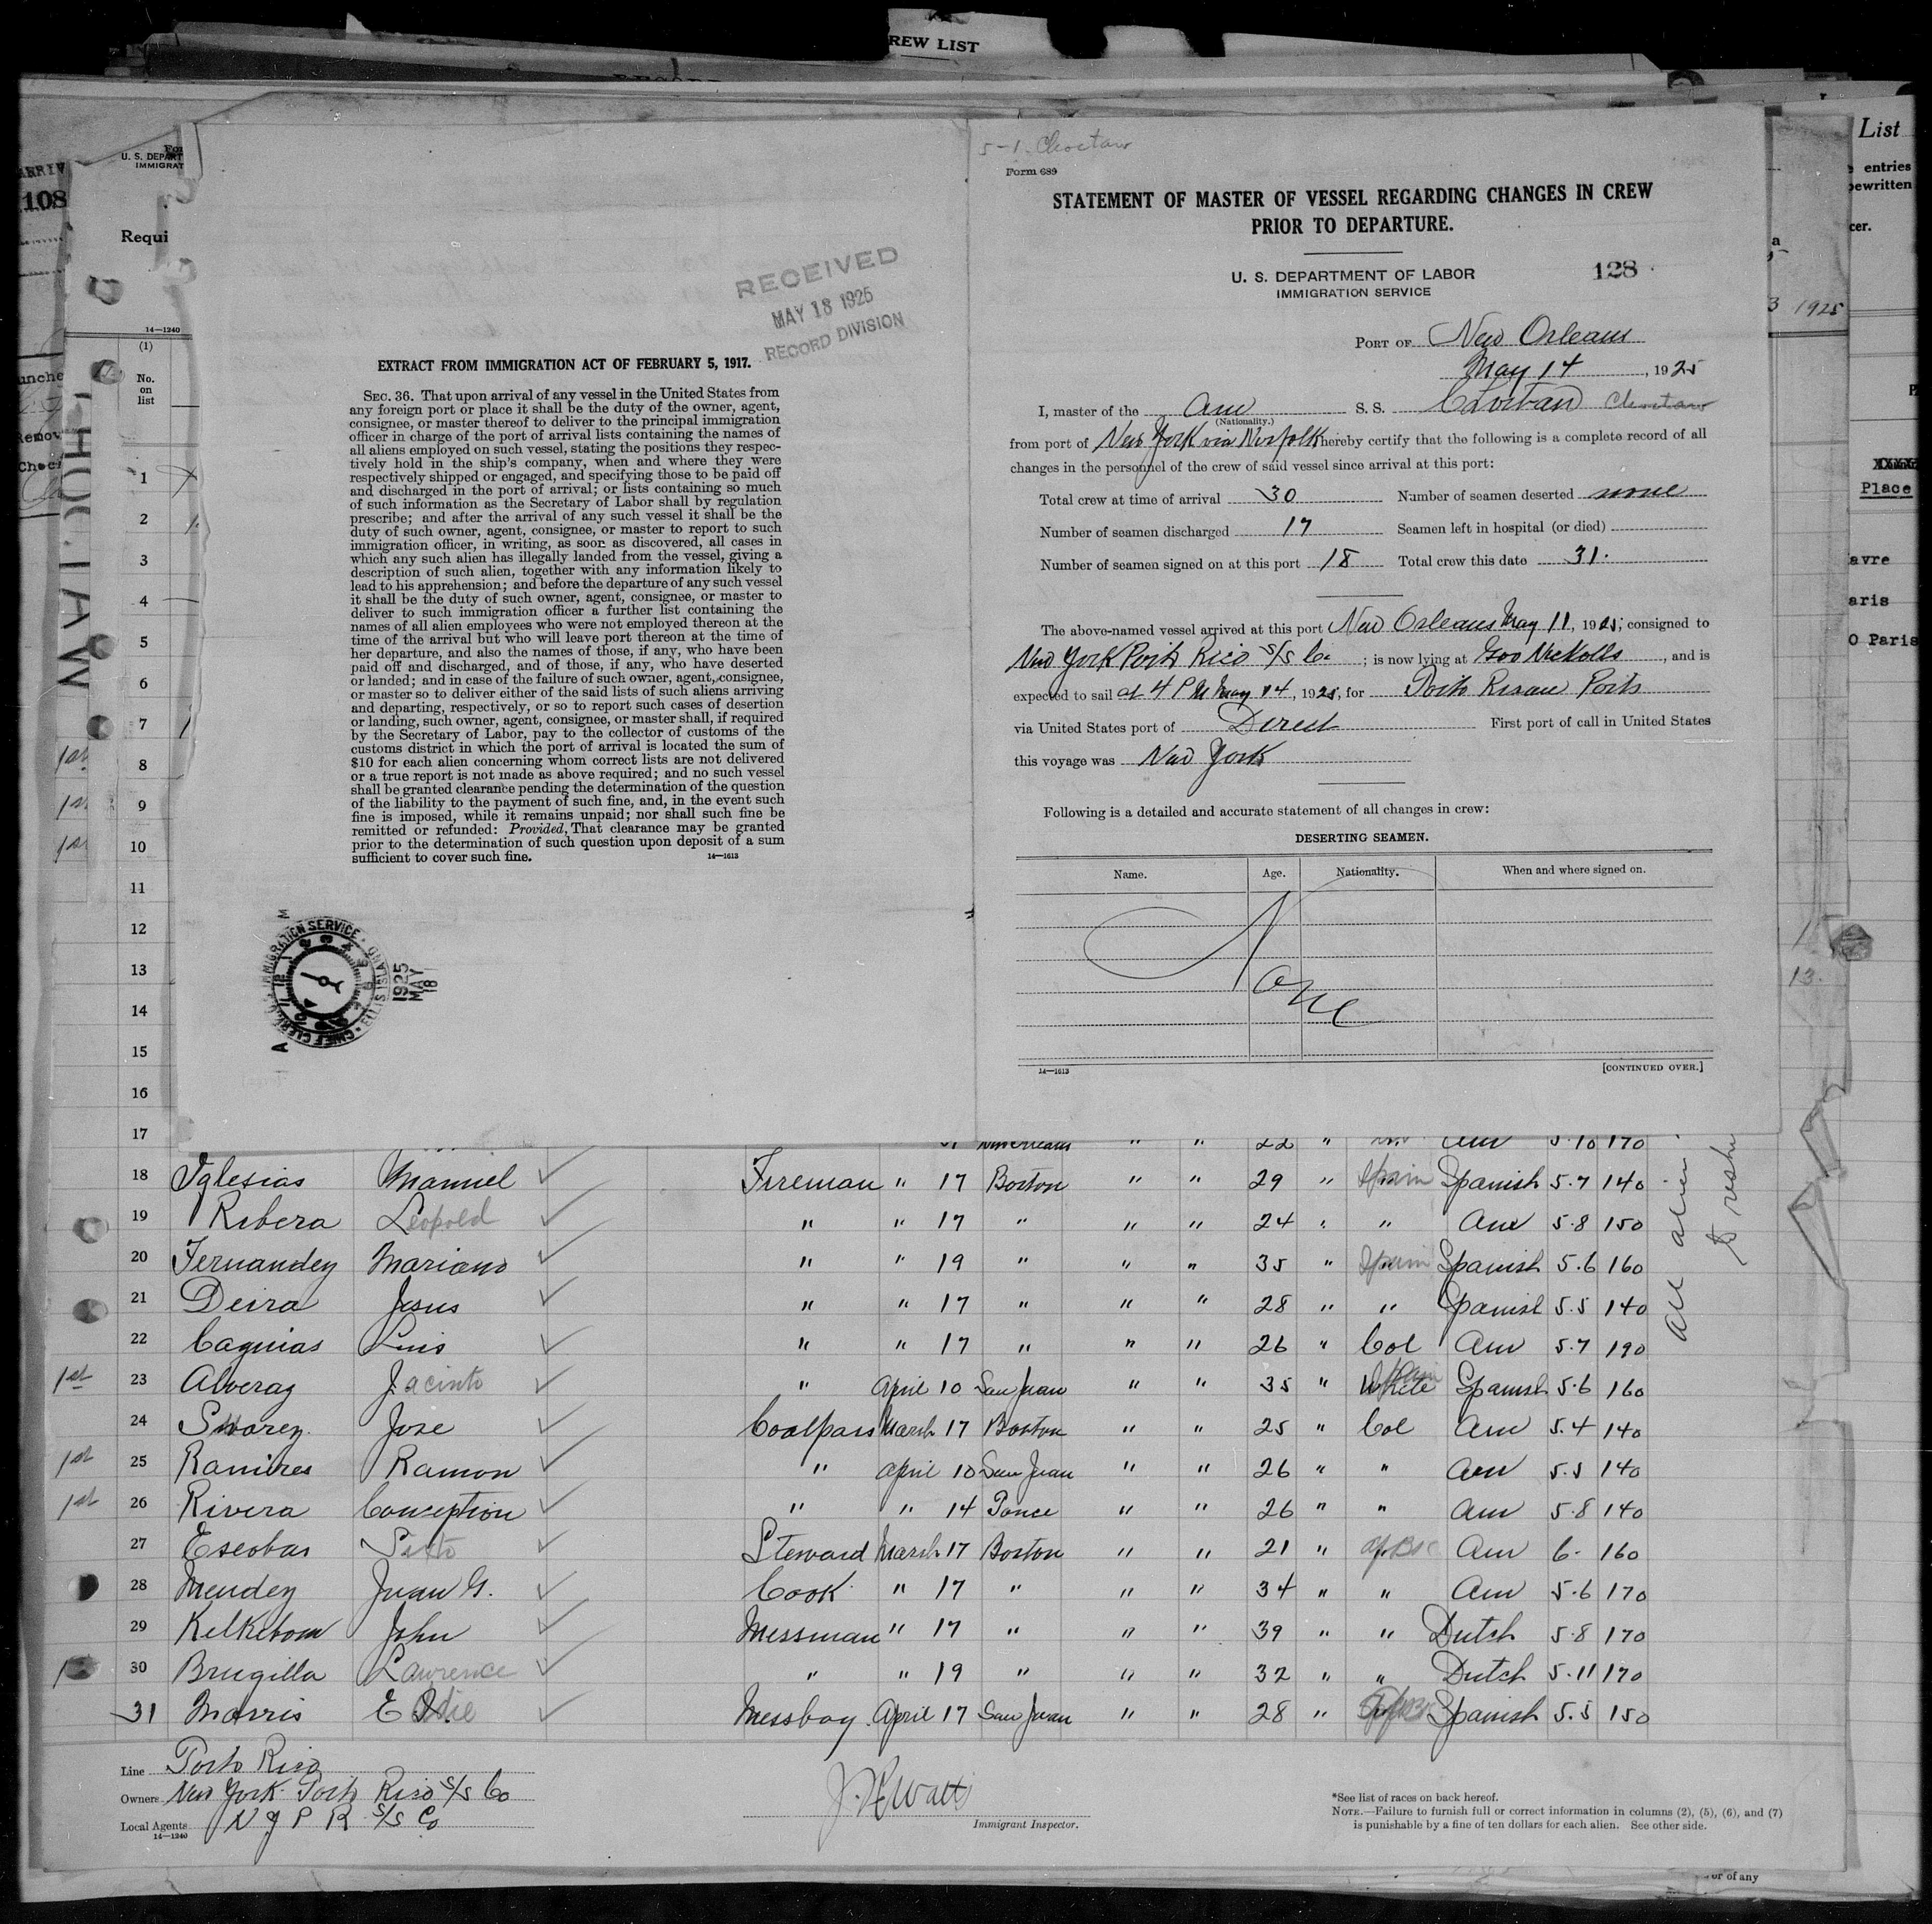 REW LIST
List
entries
ewritten
cer.
ARRIV
108
U. S. DEPART
IMMIGRAT
Requi
14—1240
(1)
No.
on
list
CHOCTAW
RECEIVED
MAY 18 1925
RECORD DIVISION
EXTRACT FROM IMMIGRATION ACT OF FEBRUARY 5, 1917.
SEC. 36. That upon arrival of any vessel in the United States from
any foreign port or place it shall be the duty of the owner, agent,
consignee, or master thereof to deliver to the principal immigration
officer in charge of the port of arrival lists containing the names of
all aliens employed on such vessel, stating the positions they respec-
tively hold in the ship's company, when and where they were
respectively shipped or engaged, and specifying those to be paid off
and discharged in the port of arrival; or lists containing so much
of such information as the Secretary of Labor shall by regulation
prescribe; and after the arrival of any such vessel it shall be the
duty of such owner, agent, consignee, or master to report to such
immigration officer, in writing, as soon as discovered, all cases in
which any such alien has illegally landed from the vessel, giving a
description of such alien, together with any information likely to
lead to his apprehension; and before the departure of any such vessel
it shall be the duty of such owner, agent, consignee, or master to
deliver to such immigration officer a further list containing the
names of all alien employees who were not employed thereon at the
time of the arrival but who will leave port thereon at the time of
her departure, and also the names of those, if any, who have been
paid off and discharged, and of those, if any, who have deserted
or landed; and in case of the failure of such owner, agent, consignee,
or master so to deliver either of the said lists of such aliens arriving
and departing, respectively, or so to report such cases of desertion
or landing, such owner, agent, consignee, or master shall, if required
by the Secretary of Labor, pay to the collector of customs of the
customs district in which the port of arrival is located the sum of
$10 for each alien concerning whom correct lists are not delivered
or a true report is not made as above required; and no such vessel
shall be granted clearance pending the determination of the question
of the liability to the payment of such fine, and, in the event such
fine is imposed, while it remains unpaid; nor shall such fine be
remitted or refunded: Provided, That clearance may be granted
prior to the determination of such question upon deposit of a sum
sufficient to cover such fine.
14—1613
IMMIGRATION SERVICE · ELLIS ISLAND · CHIEF CLERK
1925
MAY
18
5-1. Choctaw
Form 689
STATEMENT OF MASTER OF VESSEL REGARDING CHANGES IN CREW
PRIOR TO DEPARTURE.
U. S. DEPARTMENT OF LABOR
IMMIGRATION SERVICE
128
PORT OF New Orleans
May 14, 1925
I, master of the Am S. S. Choctaw
(Nationality.)
from port of New York via Norfolk hereby certify that the following is a complete record of all
changes in the personnel of the crew of said vessel since arrival at this port:
Total crew at time of arrival 30 Number of seamen deserted none
Number of seamen discharged 17 Seamen left in hospital (or died)
Number of seamen signed on at this port 18 Total crew this date 31.
The above-named vessel arrived at this port New Orleans May 11, 1925; consigned to
New York Porto Rico S/S Co ; is now lying at , and is
expected to sail at 4 PM May 14, 1925, for Porto Rican Ports
via United States port of Direct First port of call in United States
this voyage was New York
Following is a detailed and accurate statement of all changes in crew:
DESERTING SEAMEN.
Name. Age. Nationality. When and where signed on.
None
14—1613 [CONTINUED OVER.]
3 1925
Place
avre
aris
O Paris
1
2
3
4
5
6
7
1st 8
1st 9
1st 10
11
12
13
14
15
16
17 New Orleans " " 22 " Am 5.10 170
18 Iglesias Manuel Fireman " 17 Boston " " 29 " Spain Spanish 5.7 140
19 Ribera Leopold " " 17 " " " 24 " " Am 5.8 150
20 Fernandez Mariano " " 19 " " " 35 " Spain Spanish 5.6 160
21 Deira Jesus " " 17 " " " 28 " " Spanish 5.5 140
22 Caguias Luis " " 17 " " " 26 " Col Am 5.7 190
1st 23 Alveraz Jacinto " April 10 San Juan " " 35 " White Spain Spanish 5.6 160
24 Suarez Jose Coalpass March 17 Boston " " 25 " Col Am 5.4 140
1st 25 Ramires Ramon " April 10 San Juan " " 26 " " Am 5.5 140
1st 26 Rivera Conception " " 14 Ponce " " 26 " " Am 5.8 140
27 Escobar Sixto Steward March 17 Boston " " 21 " Am 6. 160
28 Mendez Juan G. Cook " 17 " " " 34 " " Am 5.6 170
29 Kelkebom John Messman " 17 " " " 39 " " Dutch 5.8 170
30 Brugilla Lawrence " " 19 " " " 32 " " Dutch 5.11 170
31 Morris Eddie Messboy April 17 San Juan " " 28 " Spanish 5.5 150
Line Porto Rico
Owners New York Porto Rico S/S Co
Local Agents N Y P R S/S Co
14—1240
Immigrant Inspector.
*See list of races on back hereof.
NOTE.—Failure to furnish full or correct information in columns (2), (5), (6), and (7)
is punishable by a fine of ten dollars for each alien. See other side.
or of any